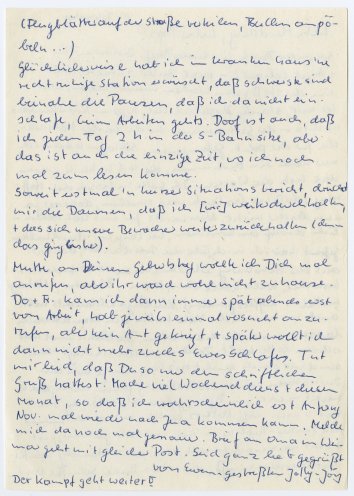 (Flugblätter auf der Straße verteilen, Bullen anpö-
beln...)
Glücklicherweise hab ich im Krankenhaus eine
recht ruhige Station erwischt, das schwerste sind
beinahe die Pausen, daß ich da nicht ein-
schlafe, beim Arbeiten gehts. Doof ist auch, daß
ich jeden Tag 2 h in der S-Bahn sitze, aber
das ist auch die einzige Zeit, wo ich noch
mal zum lesen komme.
Soweit erstmal ein kurzer Situationsbericht, drückt
mir die Daumen, daß ich [wir] weiter durchhalten,
+ das sich unsere Bewacher weiter zurückhalten (denn
das ging bisher).
Mutti, an Deinem Geburtstag wollte ich Dich mal
anrufen, aber ihr ward wohl nicht zuhause.
Do + Fr. kam ich dann immer spät abends erst
von Arbeit, hab jeweils einmal versucht anzu-
rufen, aber kein Amt gekriegt, + später wollt ich
dann nicht mehr zwecks Eures Schlafes. Tut
mir leid, daß Du so nur den schriftlichen
Gruß hattest. Mache viel Wochenenddienst diesen
Monat, so daß ich wahrscheinlich erst Anfang
Nov. mal wieder nach Jena kommen kann. Melde
mich da noch mal genauer. Brief an Oma in Wei-
mar geht mit gleicher Post. Seid ganz lieb gegrüßt
von Eurem gestreßten
Der Kampf geht weiter!